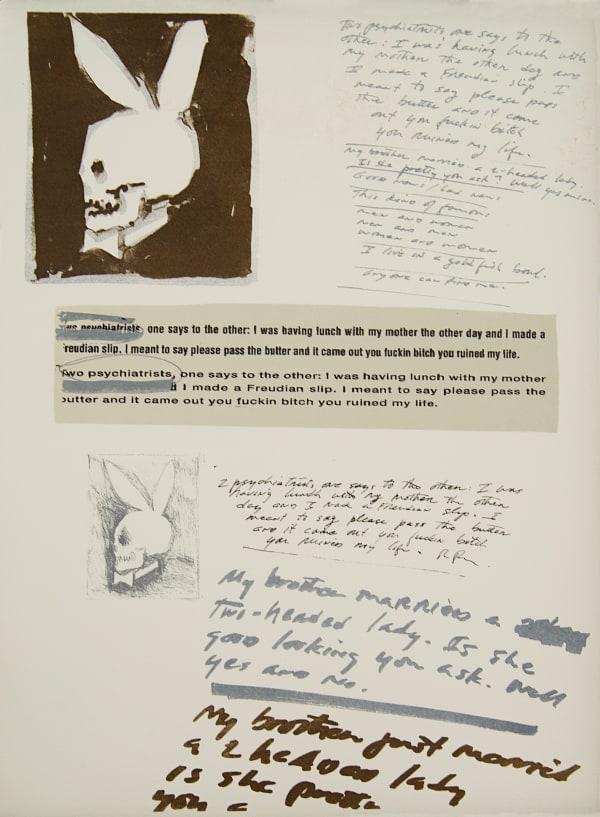 Two psychiatrists one says to the
other: I was having lunch with
my mother the other day and
I made a Freudian slip. I
meant to say please pass
the butter and it came
out you fuckin bitch
you ruined my life.
My brother married a 2-headed lady.
Is she pretty you ask? Well yes and no.
Good news/bad news
This kind of famous
men and women
men and men
women and women
I live in a goldfish bowl.
Anyone can fire me.
two psychiatrists, one says to the other: I was having lunch with my mother the other day and I made a
reudian slip. I meant to say please pass the butter and it came out you fuckin bitch you ruined my life.
wo psychiatrists, one says to the other: I was having lunch with my mother
d I made a Freudian slip. I meant to say please pass the
outter and it came out you fuckin bitch you ruined my life.
2 psychiatrists one says to the other: I was
having lunch with my mother the other
day and I made a Freudian slip. I
meant to say please pass the butter
and it came out you fuckin bitch
you ruined my life. R.P.
My brother married a
two-headed lady. Is she
good looking you ask. Well
yes and no.
My brother just married
a 2 headed lady
is she pretty
you a